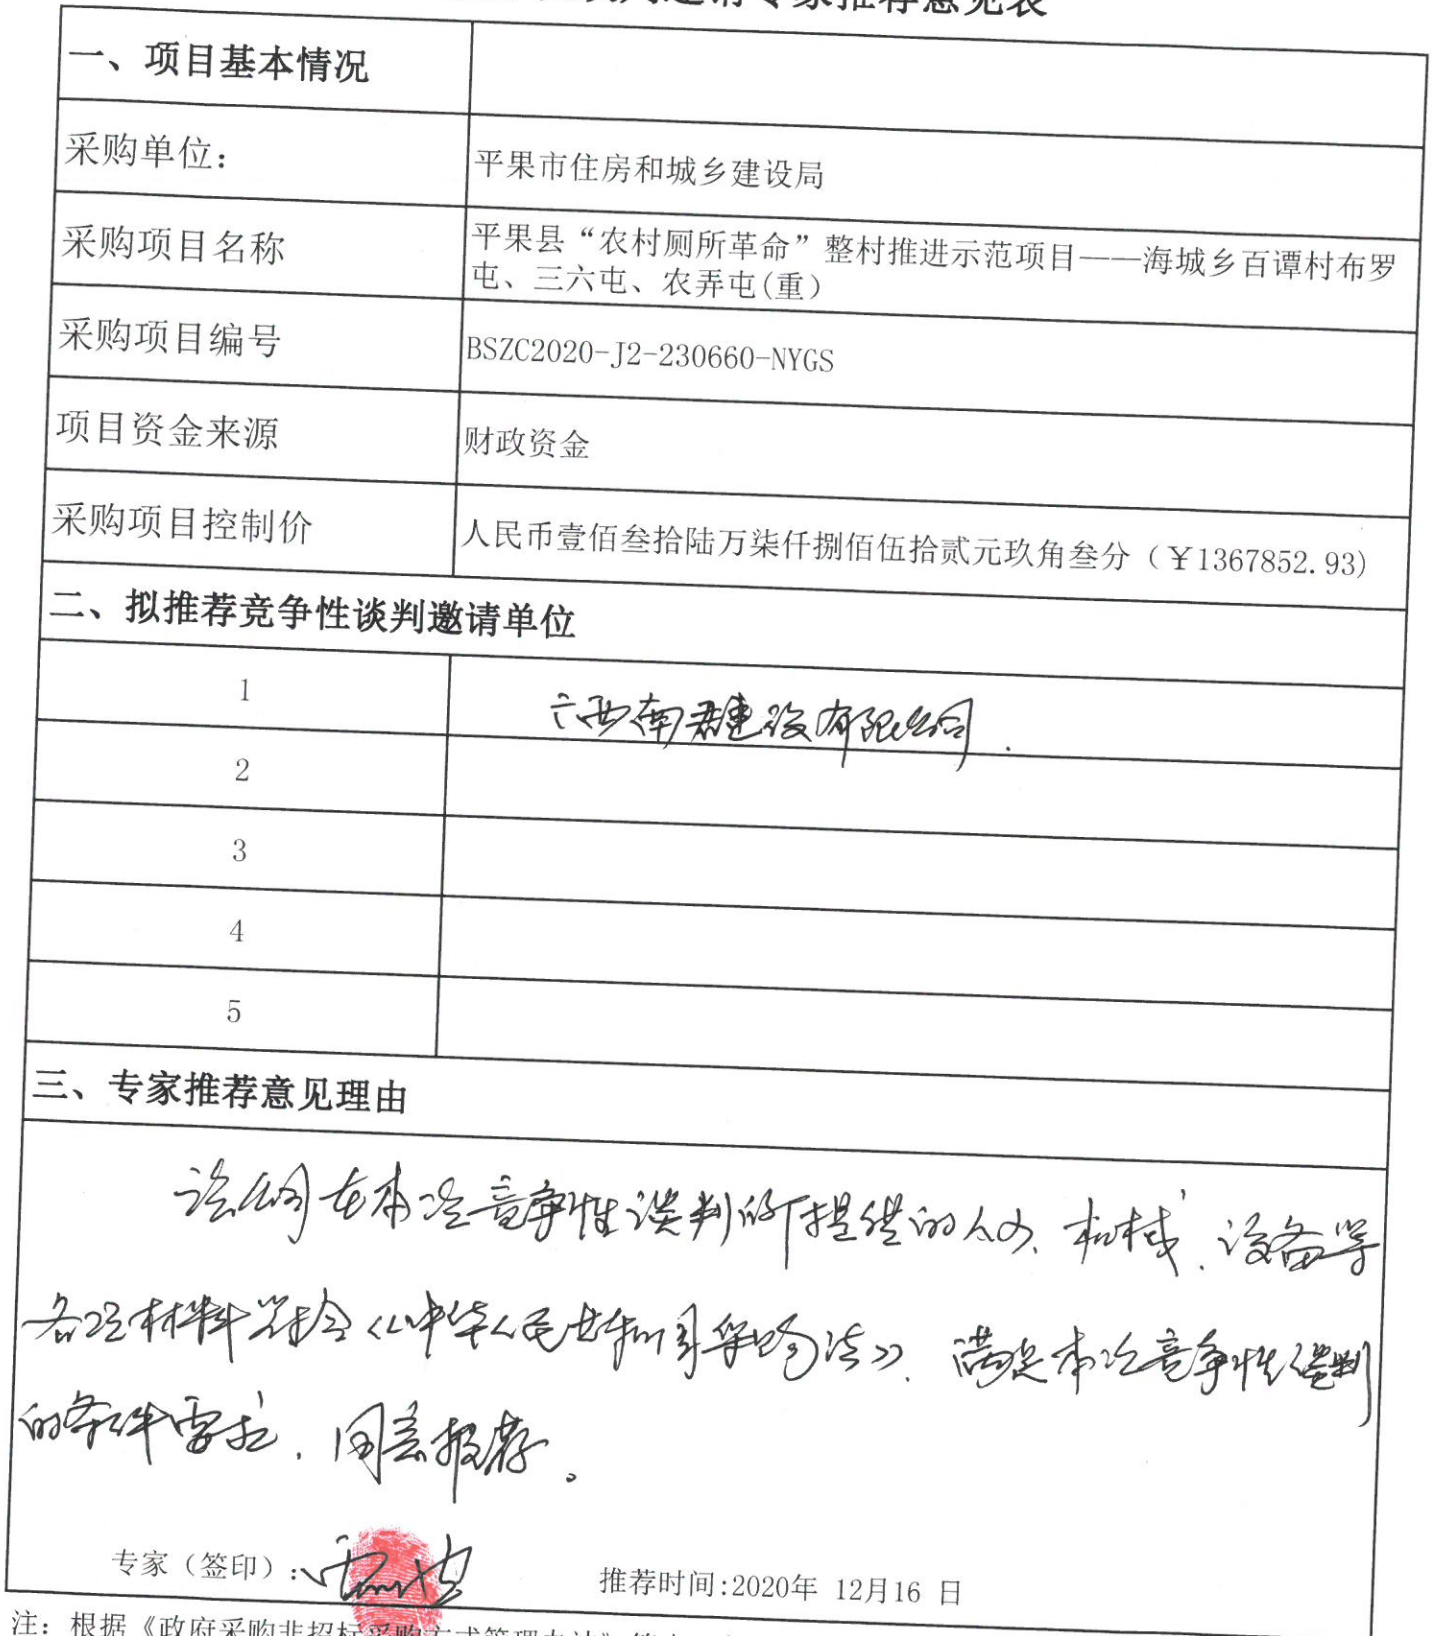 邀请专家推荐意见表
一、项目基本情况
采购单位:
平果市住房和城乡建设局
采购项目名称
平果县“农村厕所革命”整村推进示范项目——海城乡百谭村布罗
屯、三六屯、农弄屯(重)
采购项目编号
BSZC2020-J2-230660-NYGS
项目资金来源
财政资金
采购项目控制价
人民币壹佰叁拾陆万柒仟捌佰伍拾贰元玖角叁分（￥1367852.93)
二、拟推荐竞争性谈判邀请单位
1
广西南君建设有限公司.
2
3
4
5
三、专家推荐意见理由
该公司在本次竞争性谈判所提供的人员、机械、设备等
各项材料符合《中华人民共和国采购法》、满足本次竞争性谈判
的条件要求,同意推荐。
专家（签印）:
推荐时间:2020年 12月16 日
注: 根据《政府采购非招标采购方式管理办法》第